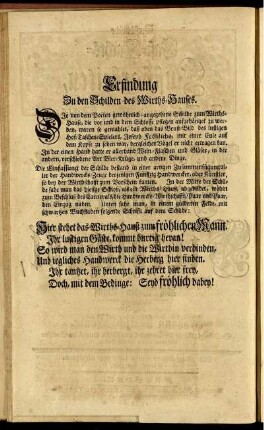 Erfindung
Zu den Schilden des Wirths-Hauses.
Die von dem Poeten gewöhnlich-angegebene Schilde zum Wirths-
Hause, die vor und in dem Schlosse pflegen aufgehänget zu wer-
den, waren so gemahlet, daß oben das Brust-Bild des lustigen
Hof-Taschen-Spielers, Joseph Fröhlichs, mit einer Eule auf
dem Kopfe zu sehen
In der einen Hand hatte er allerhand Wein-Flaschen und Gläser, in der
andern, verschiedene Art Bier-Krüge, und andere Dinge.
Die Einfassung der Schilde bestand in einer artigen Zusammenfügung al-
ler der Handwercks-Zeuge derjenigen Künstler, Handwercker, oder Künstler,
so bey der Wirthschafft zum Vorschein kamen. In der Mitte der Schil-
de sahe man
zum Beschluß des Carnevals die Handwercks-Wirthschafft, Paar und Paar,
den Einzug nahm. Unten sahe man, in einem güldenen Felde, mit
schwartzen Buchstaben folgende Schrifft auf dem Schilde:
Hier stehet das Wirths-Hauß zum fröhlichen Mann.
Ihr lustigen Gäste, kommt hurtig heran!
So wird man den Wirth und die Wirthin verbinden,
Und iegliches Handwerck die Herberg hier finden.
Ihr tantzet, ihr herbergt, ihr zehret hier frey,
Doch, mit dem Bedinge: Seyd fröhlich dabey!